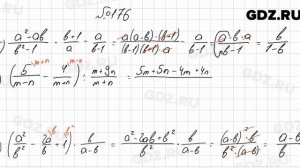 №176
GDZ.RU
) (a²-ab)/(b²-1) · (b+1)/a - a/(b-1) = a(a-b)·(b+1)/(b-1)(b+1)·a - a/(b-1) = (a-b-a)/(b-1) = b/(1-b)
) (5/(m-n) - 4/(m+n)) : (m+9n)/(m+n) = 5m+5n-4m+4n
) (a²/b² - 2a/b + 1) · b/(a-b) = (a²-2ab+b²)/b² · b/(a-b) = (a-b)²·b/b²(a-b) =
GDZ.RU